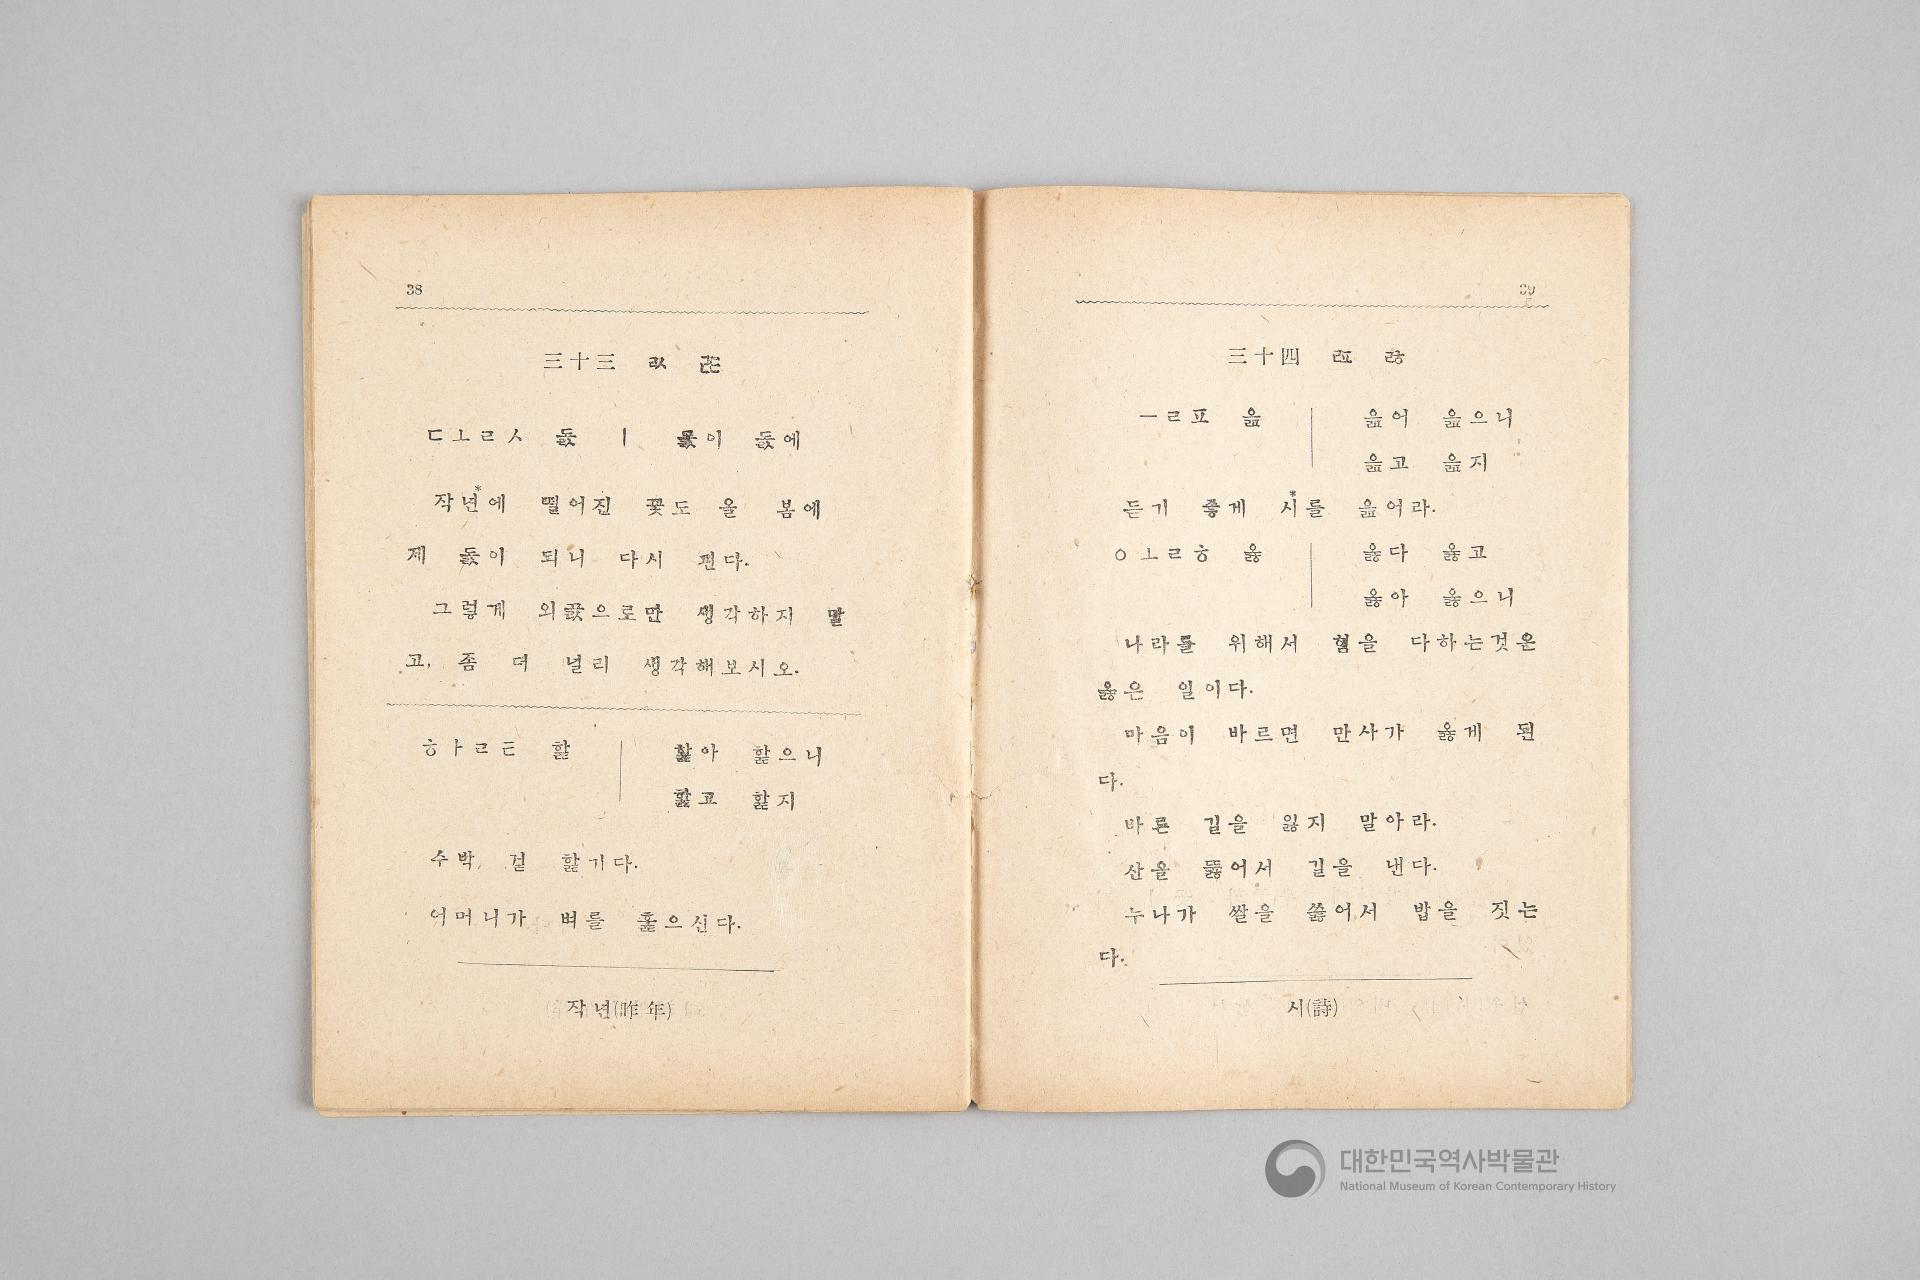 38
三十三 ㄽ ㄾ
ㄷㅗㄹㅅ 돐 | 돐이 돐에
작년*에 떨어진 꽃도 올 봄에
제 돐이 되니 다시 핀다.
그렇게 외곬으로만 생각하지 말
고, 좀 더 널리 생각해보시오.
ㅎㅏㄹㅌ 핥 | 핥아 핥으니
핥고 핥지
수박, 겉 핥기다.
어머니가 벼를 훑으신다.
작년(昨年)
39
三十四 ㄿ ㅀ
ㅡㄹㅍ 읊 | 읊어 읊으니
읊고 읊지
듣기 좋게 시*를 읊어라.
ㅇㅗㄹㅎ 옳 | 옳다 옳고
옳아 옳으니
나라를 위해서 힘을 다하는것은
옳은 일이다.
마음이 바르면 만사가 옳게 된
다.
바른 길을 잃지 말아라.
산을 뚫어서 길을 낸다.
누나가 쌀을 쓿어서 밥을 짓는
다.
시(詩)
대한민국역사박물관
National Museum of Korean Contemporary History